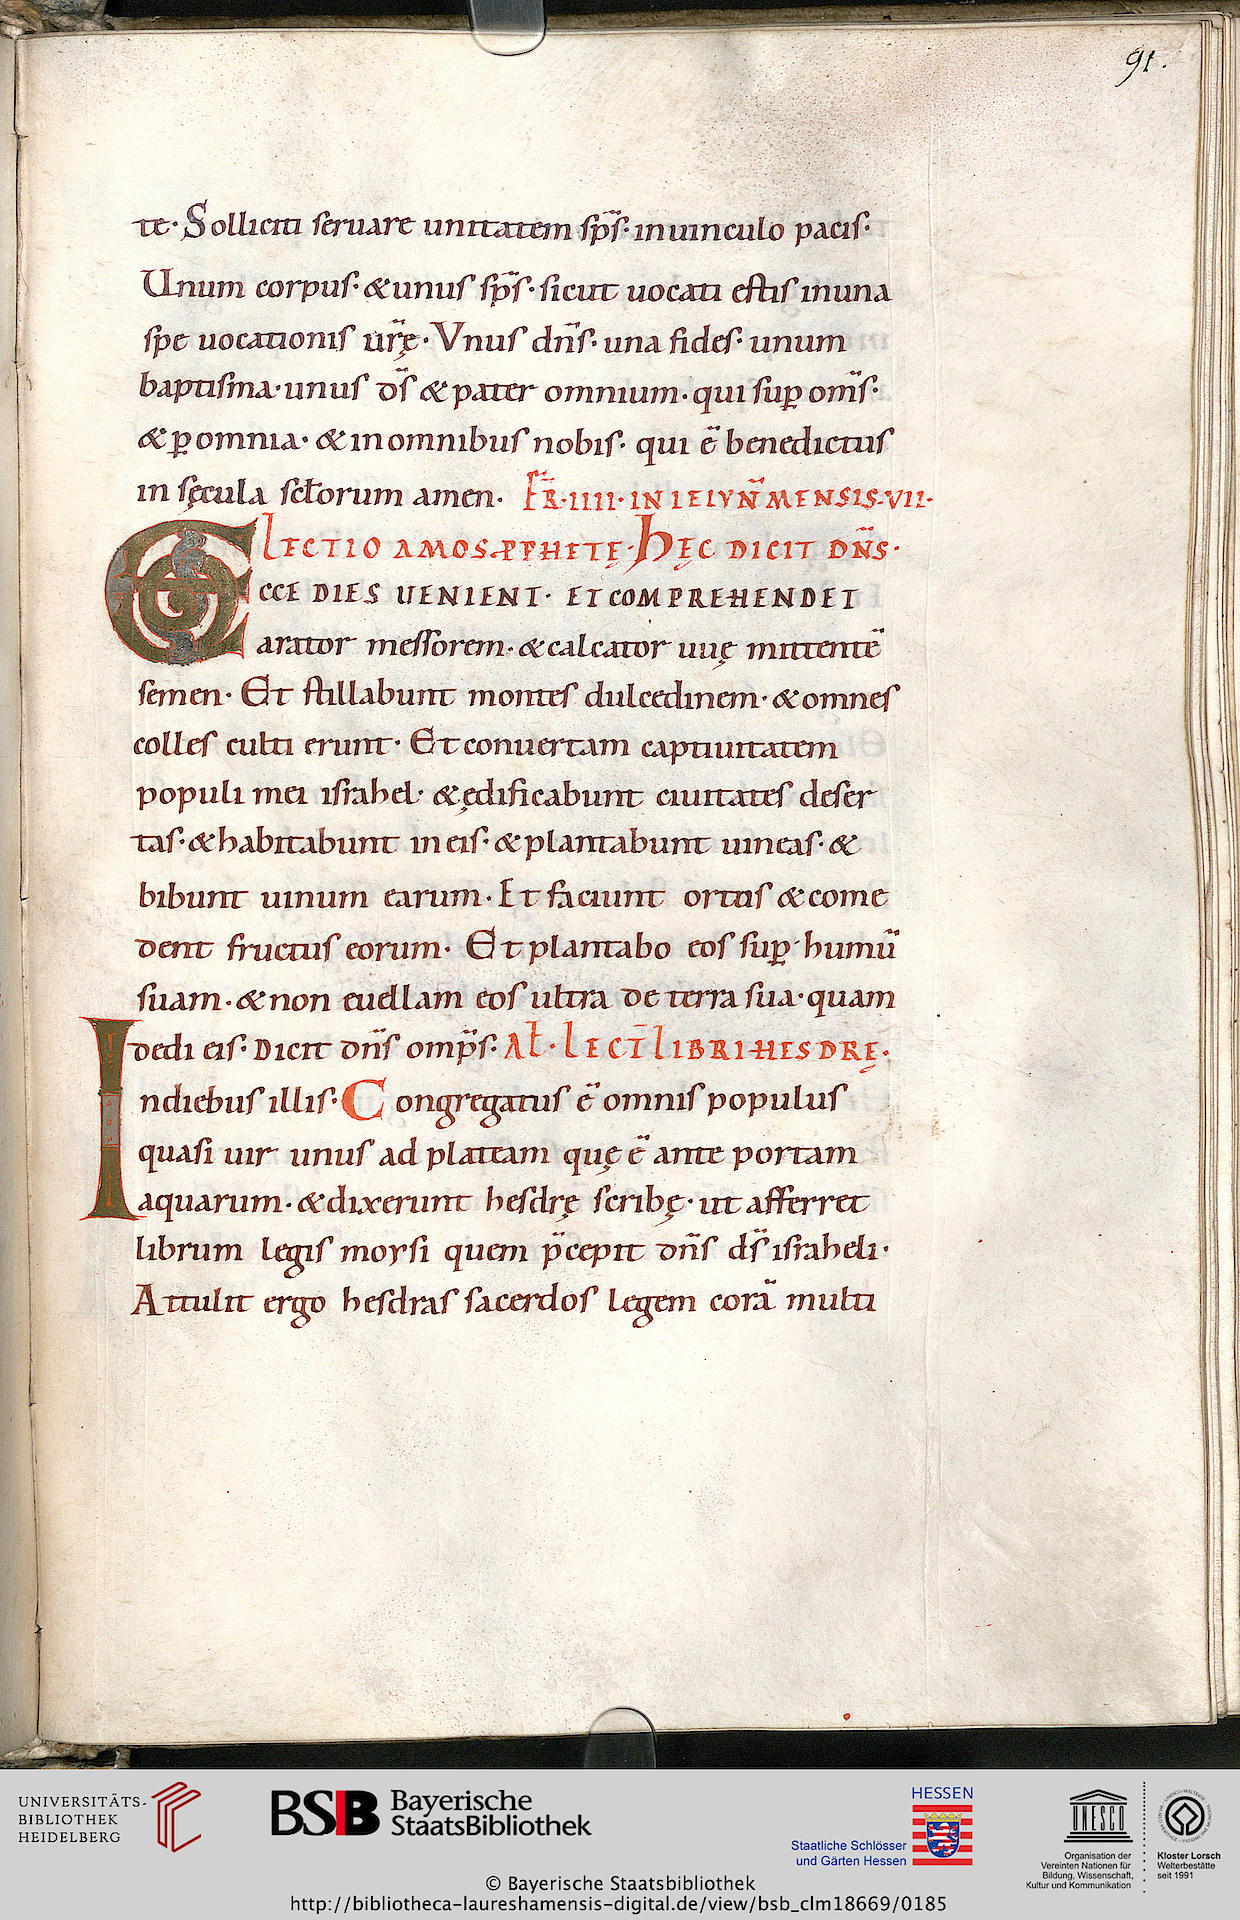 91.
te· Solliciti seruare unitatem sp̄s· inuinculo pacis·
Unum corpus· &unus sp̄s· sicut uocati estis inuna
spe uocationis ūrę· Vnus dn̄s· una fides· unum
baptisma· unus d̄s & pater omnium· qui sup̱ om̄s·
& p̱ omnia· & inomnibus nobis· qui ē benedictus
in sęcula sc̄torum amen. FR̄· IIII· IN IEIVN̄ MENSIS· VII·
LECTIO AMOS PPHETĘ· HĘC DICIT DN̄S·
ECCE DIES UENIENT· ET COMPREHENDET
arator messorem· & calcator uuę mittentē
semen· Et stillabunt montes dulcedinem· & omnes
colles culti erunt· Et conuertam captiuitatem
populi mei israhel· & ędificabunt ciuitates deser
tas· & habitabunt in eis· & plantabunt uineas· &
bibunt uinum earum· Et faciunt ortus & come
dent fructus eorum· Et plantabo eos sup̱ humū
suam· & non euellam eos ultra de terra sua· quam
dedi eis· Dicit dn̄s omp̄s· AŁ· LECT̄ LIBRI HESDRĘ·
Indiebus illis· Congregatus ē omnis populus
quasi uir unus ad plateam quę ē ante portam
aquarum· & dixerunt hesdrę scribę· ut afferret
librum legis moysi quem p̄cepit dn̄s ds̄ israheli·
Attulit ergo hesdras sacerdos legem corā multi
UNIVERSITÄTS-
BIBLIOTHEK
HEIDELBERG
BSB Bayerische
StaatsBibliothek
HESSEN
Staatliche Schlösser
und Gärten Hessen
UNESCO
Organisation der
Vereinten Nationen für
Bildung, Wissenschaft,
Kultur und Kommunikation
Kloster Lorsch
Welterbestätte
seit 1991
© Bayerische Staatsbibliothek
http://bibliotheca-laureshamensis-digital.de/view/bsb_clm18669/0185